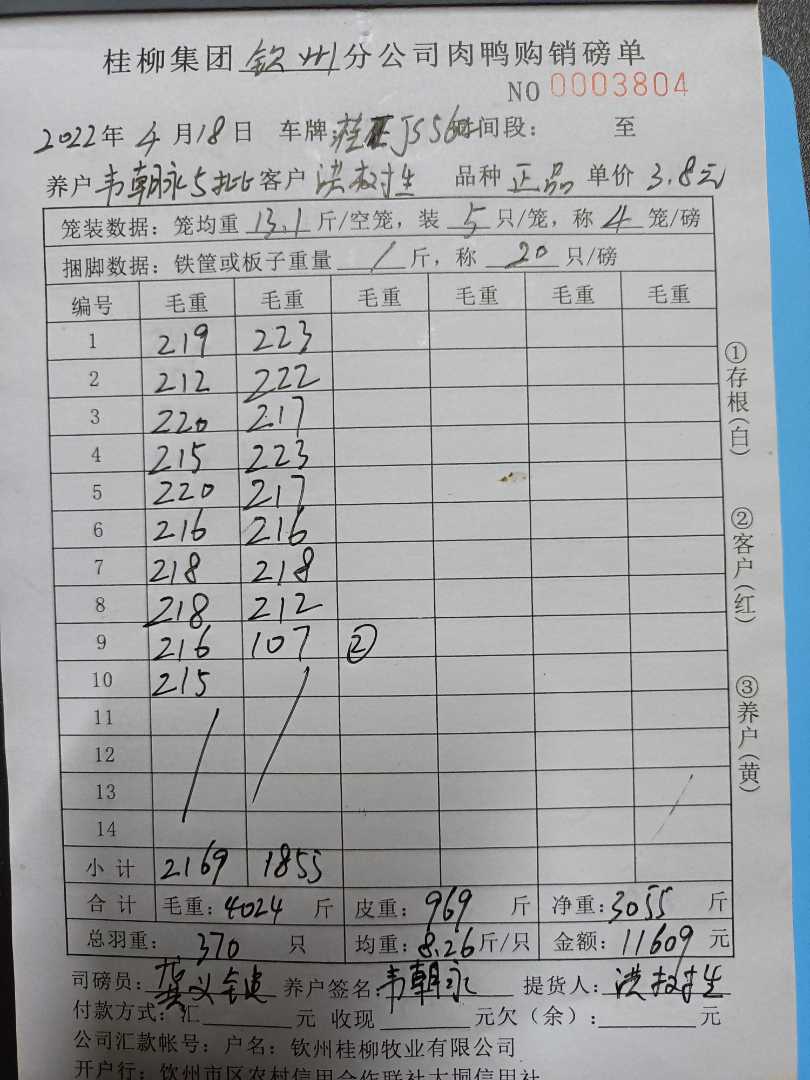 桂柳集团 钦州 分公司肉鸭购销磅单
NO 0003804
2022年 4月18日 车牌: 时间段: 至
养户 韦朝永5批 客户 洪树生 品种 正品 单价 3.8元
笼装数据: 笼均重 13.1 斤/空笼, 装 5 只/笼, 称 4 笼/磅
捆脚数据: 铁筐或板子重量 / 斤, 称 20 只/磅
编号 毛重 毛重 毛重 毛重 毛重 毛重
1 219 223
2 212 222
3 220 217
4 215 223
5 220 217
6 216 216
7 218 218
8 218 212
9 216 107 ②
10 215
11
12
13
14
小计 2169 1855
合计 毛重: 4024 斤 皮重: 969 斤 净重: 3055 斤
总羽重: 370 只 均重: 8.26斤/只 金额: 11609 元
司磅员: 养户签名: 韦朝永 提货人: 洪树生
付款方式: 汇 元 收现 元欠(余): 元
公司汇款帐号: 户名: 钦州桂柳牧业有限公司
开户行: 钦州市区农村信用合作联社大垌信用社
①存根(白)
②客户(红)
③养户(黄)